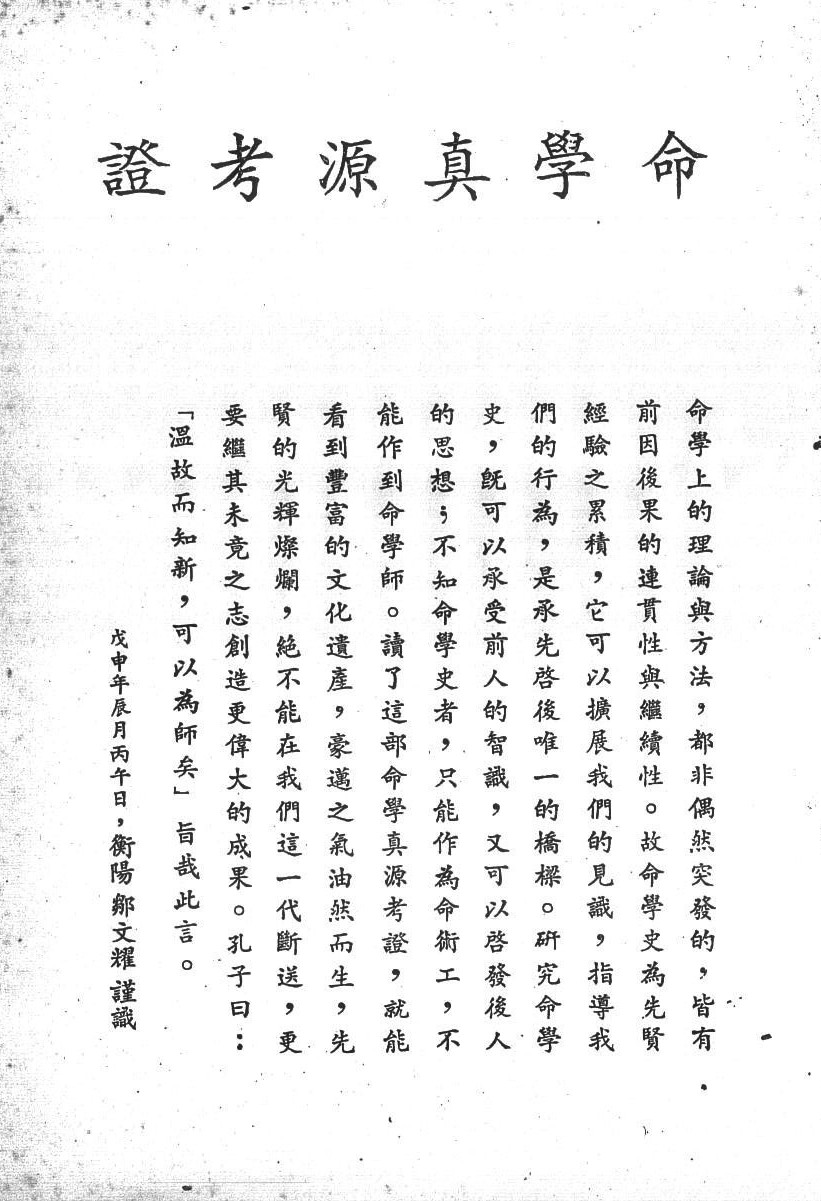 命學真源考證
命學上的理論與方法，都非偶然突發的，皆有
前因後果的連貫性與繼續性。故命學史為先賢
經驗之累積，它可以擴展我們的見識，指導我
們的行為，是承先啓後唯一的橋樑。研究命學
史，旣可以承受前人的智識，又可以啓發後人
的思想；不知命學史者，只能作為命術工，不
能作到命學師。讀了這部命學真源考證，就能
看到豐富的文化遺產，豪邁之氣油然而生，先
賢的光輝燦爛，絕不能在我們這一代斷送，更
要繼其未竟之志創造更偉大的成果。孔子曰：
「溫故而知新，可以為師矣」旨哉此言。
戊申年辰月丙午日，衡陽鄒文耀謹識